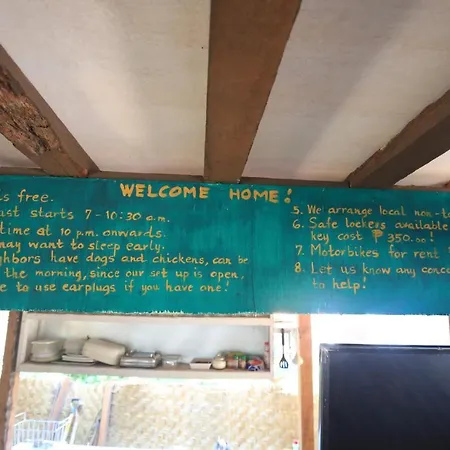 WELCOME HOME!
is free.
starts 7-10:30 a.m.
time at 10 p.m. onwards.
may want to sleep early.
have dogs and chickens, can be
the morning, since our set up is open,
to use earplugs if you have one!
5. We arrange local non-
6. Safe lockers available
key cost ₱ 350.00!
7. Motorbikes for rent
8. Let us know any
to help!